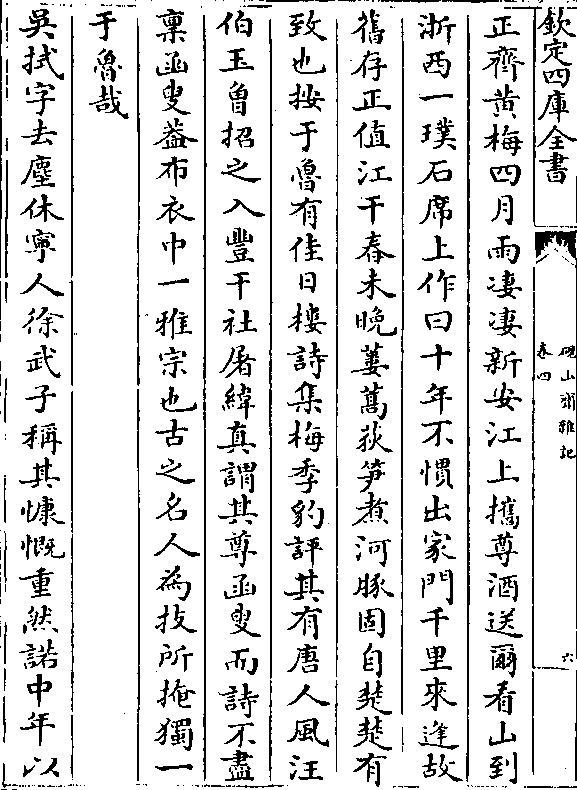 欽定四庫全書
硯山齋雜記
卷四
六
正齊黃梅四月雨凄凄新安江上攜尊酒送爾看山到
浙西一璞石席上作曰十年不慣出家門千里來逢故
舊存正值江干春未晚蔞蒿荻笋煮河豚固自楚楚有
致也按于魯有佳日樓詩集梅季豹評其有唐人風汪
伯玉魯招之入豐干社屠緯真謂其尊函叟而詩不盡
稟函叟葢布衣中一雅宗也古之名人為技所掩獨一
于魯哉
吳拭字去塵休寧人徐武子稱其慷慨重然諾中年以